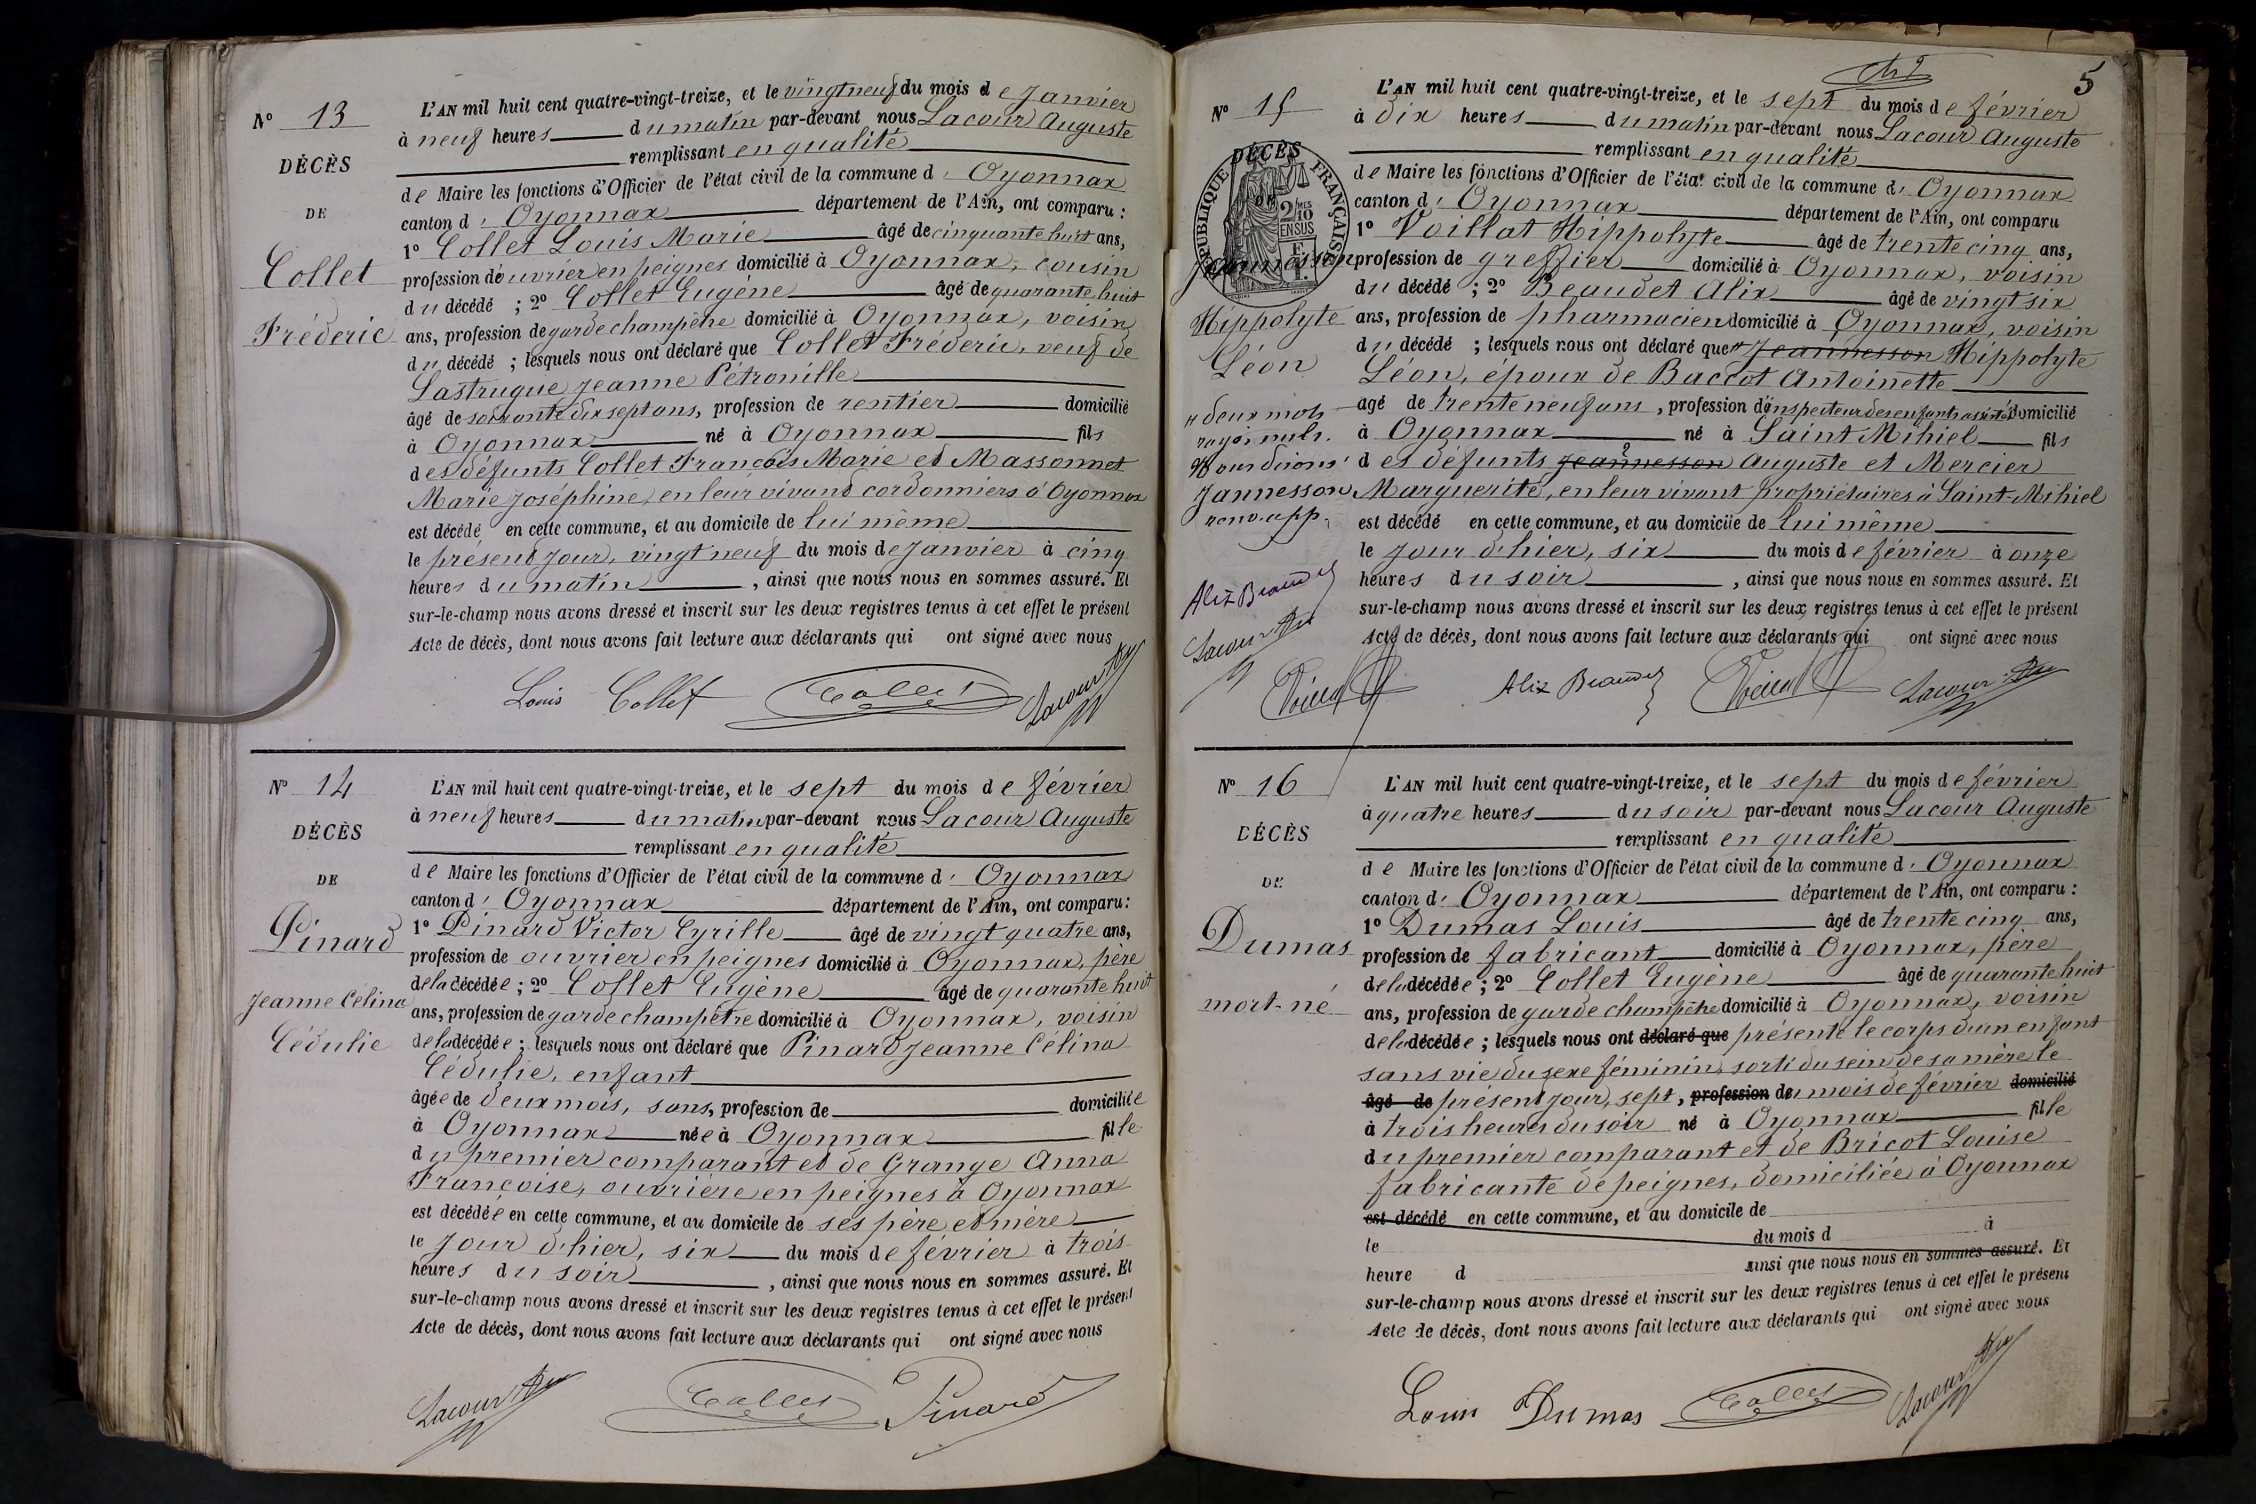 Nº 13
DÉCÈS
DE
Collet
Fréderic
L'AN mil huit cent quatre-vingt-treize, et le vingt neuf du mois de Janvier
à neuf heures du matin par-devant nous Lacour Auguste
remplissant en qualité
de Maire les fonctions d'Officier de l'état civil de la commune d' Oyonnax
canton d' Oyonnax département de l'Ain, ont comparu :
1º Collet Louis Marie âgé de cinquante huit ans,
profession d'ouvrier en peignes domicilié à Oyonnax, cousin
du décédé ; 2º Collet Eugène âgé de quarante huit
ans, profession de garde champêtre domicilié à Oyonnax, voisin
du décédé ; lesquels nous ont déclaré que Collet Fréderic, veuf de
Lastrugue Jeanne Pétronille
âgé de soixante dix sept ans, profession de rentier domicilié
à Oyonnax né à Oyonnax fils
des défunts Collet François Marie et Massonnet
Marie Joséphine, en leur vivant cordonniers à Oyonnax
est décédé en cette commune, et au domicile de lui même
le présent jour, vingt neuf du mois de Janvier à cinq
heures du matin, ainsi que nous nous en sommes assuré. Et
sur-le-champ nous avons dressé et inscrit sur les deux registres tenus à cet effet le présent
Acte de décès, dont nous avons fait lecture aux déclarants qui ont signé avec nous
Louis Collet Collet Lacour
Nº 14
DÉCÈS
DE
Pinard
Jeanne Célina
Cédulie
L'AN mil huit cent quatre-vingt-treize, et le sept du mois de février
à neuf heures du matin par-devant nous Lacour Auguste
remplissant en qualité
de Maire les fonctions d'Officier de l'état civil de la commune d' Oyonnax
canton d' Oyonnax département de l'Ain, ont comparu :
1º Pinard Victor Cyrille âgé de vingt quatre ans,
profession de ouvrier en peignes domicilié à Oyonnax, père
de la décédée ; 2º Collet Eugène âgé de quarante huit
ans, profession de garde champêtre domicilié à Oyonnax, voisin
de la décédée ; lesquels nous ont déclaré que Pinard Jeanne Célina
Cédulie, enfant
âgée de deux mois, sans, profession de domiciliée
à Oyonnax née à Oyonnax fille
du premier comparant et de Grange Anna
Françoise, ouvrière en peignes à Oyonnax
est décédée en cette commune, et au domicile de ses père et mère
le jour d'hier, six du mois de février à trois
heures du soir, ainsi que nous nous en sommes assuré. Et
sur-le-champ nous avons dressé et inscrit sur les deux registres tenus à cet effet le présent
Acte de décès, dont nous avons fait lecture aux déclarants qui ont signé avec nous
Lacour Collet Pinard
5
Nº 15
DÉCÈS
DE
RÉPUBLIQUE FRANÇAISE
2/10 MES
EN SUS
Jeannesson
Hippolyte
Léon
" deux mots
rayés nuls.
Jannesson
renv. app.
Alix Beaudet
Lacour
L'AN mil huit cent quatre-vingt-treize, et le sept du mois de février
à dix heures du matin par-devant nous Lacour Auguste
remplissant en qualité
de Maire les fonctions d'Officier de l'état civil de la commune d' Oyonnax
canton d' Oyonnax département de l'Ain, ont comparu
1º Voillat Hippolyte âgé de trente cinq ans,
profession de greffier domicilié à Oyonnax, voisin
du décédé ; 2º Beaudet Alix âgé de vingt six
ans, profession de pharmacien domicilié à Oyonnax, voisin
du décédé ; lesquels nous ont déclaré que " Jeannesson Hippolyte
Léon, époux de Baccot Antoinette
âgé de trente neuf ans, profession d'inspecteur des enfants assistés domicilié
à Oyonnax né à Saint Mihiel fils
des défunts Jeannesson Auguste et Mercier
Marguerite, en leur vivant propriétaires à Saint-Mihiel
est décédé en cette commune, et au domicile de lui même
le jour d'hier, six du mois de février à onze
heures du soir, ainsi que nous nous en sommes assuré. Et
sur-le-champ nous avons dressé et inscrit sur les deux registres tenus à cet effet le présent
Acte de décès, dont nous avons fait lecture aux déclarants qui ont signé avec nous
Alix Beaudet Lacour
Nº 16
DÉCÈS
DE
Dumas
mort-né
L'AN mil huit cent quatre-vingt-treize, et le sept du mois de février
à quatre heures du soir par-devant nous Lacour Auguste
remplissant en qualité
de Maire les fonctions d'Officier de l'état civil de la commune d' Oyonnax
canton d' Oyonnax département de l'Ain, ont comparu :
1º Dumas Louis âgé de trente cinq ans,
profession de fabricant domicilié à Oyonnax, père
de la décédée ; 2º Collet Eugène âgé de quarante huit
ans, profession de garde champêtre domicilié à Oyonnax, voisin
de la décédée ; lesquels nous ont déclaré que présenté le corps d'un enfant
sans vie du sexe féminin, sorti du sein de sa mère le
âgé de présent jour, sept, profession du mois de février domicilié
à trois heures du soir né à Oyonnax fille
du premier comparant et de Bricot Louise
fabricante de peignes, domiciliée à Oyonnax
est décédé en cette commune, et au domicile de
le du mois d à
heure d ainsi que nous nous en sommes assuré. Et
sur-le-champ nous avons dressé et inscrit sur les deux registres tenus à cet effet le présent
Acte de décès, dont nous avons fait lecture aux déclarants qui ont signé avec nous
Louis Dumas Collet Lacour